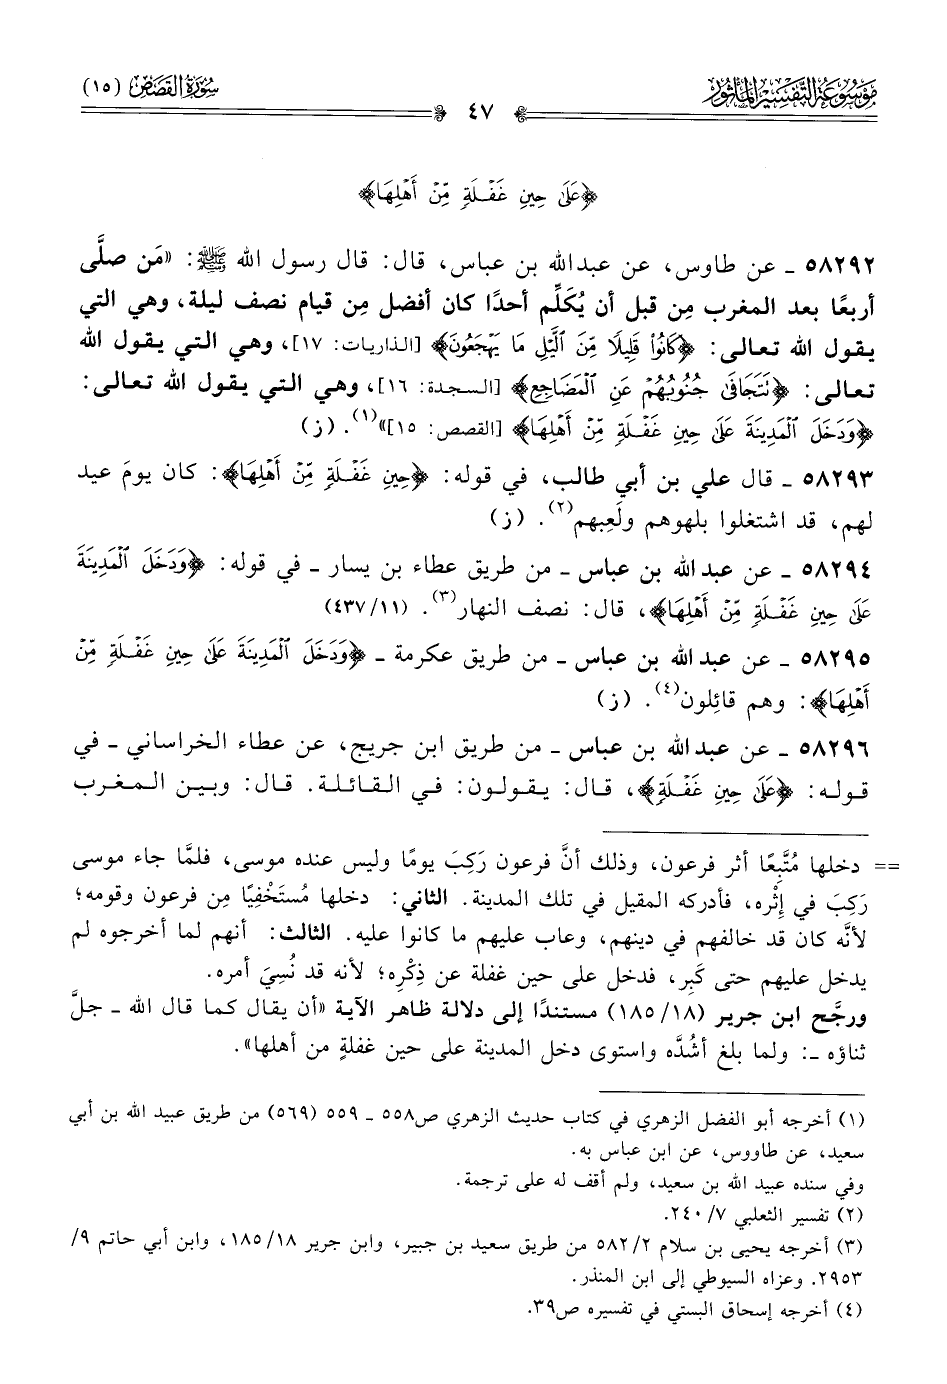 موسوعة التفسير المأثور
٤٧
سورة القصص (١٥)
﴿عَلَىٰ حِينِ غَفْلَةٍ مِّنْ أَهْلِهَا﴾
٥٨٢٩٢ ـ عن طاوس، عن عبد الله بن عباس، قال: قال رسول الله ﷺ: «مَن صلَّى
أربعًا بعد المغرب مِن قبل أن يُكَلِّم أحدًا كان أفضل مِن قيام نصف ليلة، وهي التي
يقول الله تعالى: ﴿كَانُوا۟ قَلِيلًا مِّنَ ٱلَّيْلِ مَا يَهْجَعُونَ﴾ [الذاريات: ١٧]، وهي التي يقول الله
تعالى: ﴿تَتَجَافَىٰ جُنُوبُهُمْ عَنِ ٱلْمَضَاجِعِ﴾ [السجدة: ١٦]، وهي التي يقول الله تعالى:
﴿وَدَخَلَ ٱلْمَدِينَةَ عَلَىٰ حِينِ غَفْلَةٍ مِّنْ أَهْلِهَا﴾ [القصص: ١٥]»(١). (ز)
٥٨٢٩٣ ـ قال علي بن أبي طالب، في قوله: ﴿حِينِ غَفْلَةٍ مِّنْ أَهْلِهَا﴾: كان يومَ عيد
لهم، قد اشتغلوا بلهوهم ولَعِبهم(٢). (ز)
٥٨٢٩٤ ـ عن عبد الله بن عباس ـ من طريق عطاء بن يسار ـ في قوله: ﴿وَدَخَلَ ٱلْمَدِينَةَ
عَلَىٰ حِينِ غَفْلَةٍ مِّنْ أَهْلِهَا﴾، قال: نصف النهار(٣). (٤٣٧/١١)
٥٨٢٩٥ ـ عن عبد الله بن عباس ـ من طريق عكرمة ـ ﴿وَدَخَلَ ٱلْمَدِينَةَ عَلَىٰ حِينِ غَفْلَةٍ مِّنْ
أَهْلِهَا﴾: وهم قائِلون(٤). (ز)
٥٨٢٩٦ ـ عن عبد الله بن عباس ـ من طريق ابن جريج، عن عطاء الخراساني ـ في
قوله: ﴿عَلَىٰ حِينِ غَفْلَةٍ﴾، قال: يقولون: في القائلة. قال: وبين المغرب
== دخلها مُتَّبِعًا أثر فرعون، وذلك أنَّ فرعون رَكِبَ يومًا وليس عنده موسى، فلمَّا جاء موسى
رَكِبَ في إِثْره، فأدركه المقيل في تلك المدينة. الثاني: دخلها مُسْتَخْفِيًا مِن فرعون وقومه؛
لأنَّه كان قد خالفهم في دينهم، وعاب عليهم ما كانوا عليه. الثالث: أنهم لما أخرجوه لم
يدخل عليهم حتى كَبِر، فدخل على حين غفلة عن ذِكْرِه؛ لأنه قد نُسِيَ أمره.
ورجَّح ابن جرير (١٨٥/١٨) مستندًا إلى دلالة ظاهر الآية «أن يقال كما قال الله ـ جلَّ
ثناؤه ـ: ولما بلغ أشُدَّه واستوى دخل المدينة على حين غفلةٍ من أهلها».
(١) أخرجه أبو الفضل الزهري في كتاب حديث الزهري ص٥٥٨ ـ ٥٥٩ (٥٦٩) من طريق عبيد الله بن أبي
سعيد، عن طاووس، عن ابن عباس به.
وفي سنده عبيد الله بن سعيد، ولم أقف له على ترجمة.
(٢) تفسير الثعلبي ٧/ ٢٤٠.
(٣) أخرجه يحيى بن سلام ٥٨٢/٢ من طريق سعيد بن جبير، وابن جرير ١٨٥/١٨، وابن أبي حاتم ٩/
٢٩٥٣. وعزاه السيوطي إلى ابن المنذر.
(٤) أخرجه إسحاق البستي في تفسيره ص٣٩.